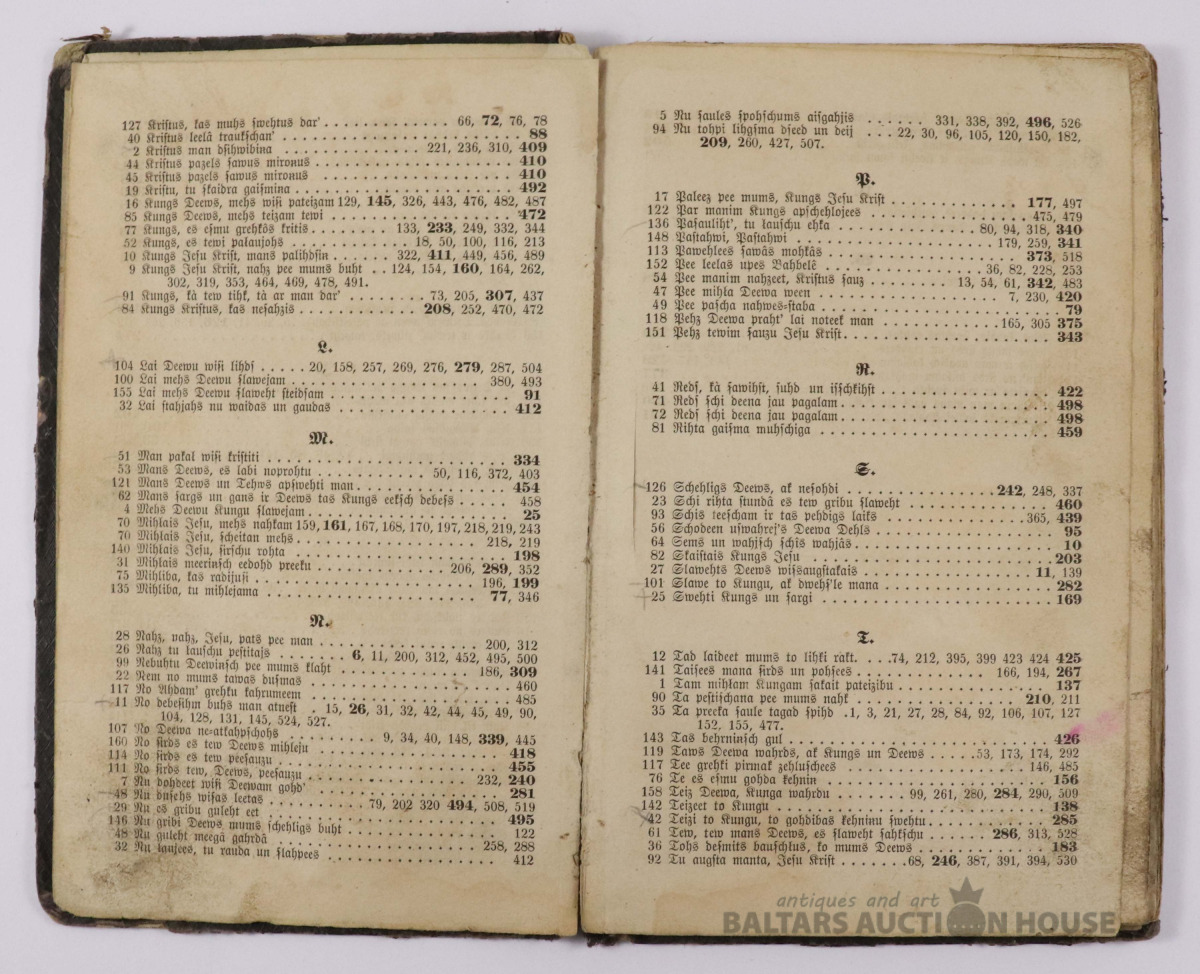 127 Kriſtus, kas muhs ſwehtus dar' . . . . . . . . . . . . . . 66, 72, 76, 78
40 Kriſtus leelâ traukſchan' . . . . . . . . . . . . . . . . . . . . 88
2 Kriſtus man dſihwibina . . . . . . . . . . . . . . 221, 236, 310, 409
44 Kriſtus paꜩels ſawus mironus . . . . . . . . . . . . . . . . . 410
45 Kriſtus paꜩels ſawus mironus . . . . . . . . . . . . . . . . . 410
19 Kriſtu, tu ſkaidra gaiſmina . . . . . . . . . . . . . . . . . . 492
16 Kungs Deews, mehs wiſi pateizam 129, 145, 326, 443, 476, 482, 487
85 Kungs Deews, mehs teizam tewi . . . . . . . . . . . . . . . . 472
77 Kungs, es eſmu grehkôs kritis . . . . . . . . 133, 233, 249, 332, 344
52 Kungs, es tewi palaujohs . . . . . . . . . . . 18, 50, 100, 116, 213
10 Kungs Jeſu Kriſt, mans palihdſin . . . . . . . 322, 411, 449, 456, 489
9 Kungs Jeſu Kriſt, nahz pee mums buht . . 124, 154, 160, 164, 262,
302, 319, 353, 464, 469, 478, 491.
91 Kungs, kà tew tihk, tà ar man dar' . . . . . . . . 73, 205, 307, 437
84 Kungs Kriſtus, kas neſahzis . . . . . . . . . . . . 208, 252, 470, 472
L.
104 Lai Deewu wiſi lihdſ . . . . . 20, 158, 257, 269, 276, 279, 287, 504
100 Lai mehs Deewu ſlawejam . . . . . . . . . . . . . . . . . 380, 493
155 Lai mehs Deewu ſlaweht ſteidſam . . . . . . . . . . . . . . . . 91
32 Lai ſtahjahs nu waidas un gaudas . . . . . . . . . . . . . . . 412
M.
51 Man pakal wiſi kriſtiti . . . . . . . . . . . . . . . . . . . . 334
53 Mans Deews, es labi noprohtu . . . . . . . . . . 50, 116, 372, 403
121 Mans Deews un Tehws apſwehti man . . . . . . . . . . . . . . 454
62 Mans ſargs un gans ir Deews tas Kungs eekſch debeſs . . . . . 458
4 Mehs Deewu Kungu ſlawejam . . . . . . . . . . . . . . . . . . 25
70 Mihlais Jeſu, mehs nahkam 159, 161, 167, 168, 170, 197, 218, 219, 243
70 Mihlais Jeſu, ſcheitan mehs . . . . . . . . . . . . . . . . 218, 219
140 Mihlais Jeſu, ſirſchu rohta . . . . . . . . . . . . . . . . . . 198
31 Mihlais meerinſch eedohd preeku . . . . . . . . . . . 206, 289, 352
75 Mihliba, kas radijuſi . . . . . . . . . . . . . . . . . . 196, 199
135 Mihliba, tu mihlejama . . . . . . . . . . . . . . . . . . . 77, 346
N.
28 Nahz, nahz, Jeſu, pats pee man . . . . . . . . . . . . . . 200, 312
26 Nahz tu lauſchu peſtitajs . . . . . . . 6, 11, 200, 312, 452, 495, 500
99 Nebuhtu Deewinſch pee mums klaht . . . . . . . . . . . . 186, 309
22 Nem no mums tawas duſmas . . . . . . . . . . . . . . . . . . 460
117 No Ahdam' grehku kahrumeem . . . . . . . . . . . . . . . . . 485
11 No debeſihm buhs man atneſt . 15, 26, 31, 32, 42, 44, 45, 49, 90,
104, 128, 131, 145, 524, 527.
107 No Deewa ne-atkahpſchohs . . . . . . . . . 9, 34, 40, 148, 339, 445
160 No ſirds es tew Deews mihleju . . . . . . . . . . . . . . . . 418
114 No ſirds es tew peeſauzu . . . . . . . . . . . . . . . . . . . 455
111 No ſirds tew, Deews, peeſauzu . . . . . . . . . . . . . . 232, 240
7 Nu dohdeet wiſi Deewam gohd' . . . . . . . . . . . . . . . . . 281
48 Nu duſehs wiſas leetas . . . . . . . . . 79, 202 320 494, 508, 519
29 Nu es gribu guleht eet . . . . . . . . . . . . . . . . . . . . 495
146 Nu gribi Deews mums ſchehligs buht . . . . . . . . . . . . . . 122
48 Nu guleht meegâ gahrdâ . . . . . . . . . . . . . . . . . . 258, 288
32 Nu lauſees, tu rauda un ſlahpees . . . . . . . . . . . . . . . 412
5 Nu ſaules ſpohſchums aiſgahjis . . . . . . 331, 338, 392, 496, 526
94 Nu tohpi lihgſma dſeed un deij . . . 22, 30, 96, 105, 120, 150, 182,
209, 260, 427, 507.
P.
17 Paleez pee mums, Kungs Jeſu Kriſt . . . . . . . . . . . . . 177, 497
122 Par manim Kungs apſchehlojees . . . . . . . . . . . . . . . 475, 479
136 Paſauliht', tu lauſchu ehka . . . . . . . . . . . . . 80, 94, 318, 340
148 Paſtahwi, Paſtahwi . . . . . . . . . . . . . . . . . . 179, 259, 341
113 Pawehlees ſawâs mohkâs . . . . . . . . . . . . . . . . . . 373, 518
152 Pee leelas upes Bahbelê . . . . . . . . . . . . . . . 36, 82, 228, 253
54 Pee manim nahzeet, Kriſtus ſauz . . . . . . . . . 13, 54, 61, 342, 483
47 Pee mihla Deewa ween . . . . . . . . . . . . . . . . . . 7, 230, 420
49 Pee paſcha nahwes-ſtaba . . . . . . . . . . . . . . . . . . . . . 79
118 Pehz Deewa praht' lai noteek man . . . . . . . . . . . . 165, 305 375
151 Pehz tewim ſauzu Jeſu Kriſt . . . . . . . . . . . . . . . . . . . 343
R.
41 Redſ, kà ſawihſt, ſuhd un iſſchkihſt . . . . . . . . . . . . . . . 422
71 Redſ ſchi deena jau pagalam . . . . . . . . . . . . . . . . . . . 498
72 Redſ ſchi deena jau pagalam . . . . . . . . . . . . . . . . . . . 498
81 Rihta gaiſma muhſchiga . . . . . . . . . . . . . . . . . . . . . 459
S.
126 Schehligs Deews, ak neſohdi . . . . . . . . . . . . . . 242, 248, 337
23 Schi rihta ſtundâ es tew gribu ſlaweht . . . . . . . . . . . . . . 460
93 Schis teeſcham ir tas pehdigs laiks . . . . . . . . . . . . . 365, 439
56 Schodeen uſwahrej's Deewa Dehls . . . . . . . . . . . . . . . . . 95
64 Sems un wahjſch ſchis wahjâs . . . . . . . . . . . . . . . . . . 10
82 Skaiſtais Kungs Jeſu . . . . . . . . . . . . . . . . . . . . . . 203
27 Slawehts Deews wiſsaugſtakais . . . . . . . . . . . . . . . . 11, 139
101 Slawe to Kungu, ak dwehſ'le mana . . . . . . . . . . . . . . . . 282
25 Swehti Kungs un ſargi . . . . . . . . . . . . . . . . . . . . . 169
T.
12 Tad laideet mums to lihki rakt. . . . 74, 212, 395, 399 423 424 425
141 Taiſees mana ſirds un pohſees . . . . . . . . . . . . . 166, 194, 267
1 Tam mihłam Kungam ſakait pateizibu . . . . . . . . . . . . . . . 137
90 Ta peſtiſchana pee mums nahk . . . . . . . . . . . . . . . . 210, 211
35 Ta preeka ſaule tagad ſpihd . 1, 3, 21, 27, 28, 84, 92, 106, 107, 127
152, 155, 477.
143 Tas behrninſch gul . . . . . . . . . . . . . . . . . . . . . . . 426
119 Taws Deewa wahrds, ak Kungs un Deews . . . . . 53, 173, 174, 292
117 Tee grehki pirmak zehluſchees . . . . . . . . . . . . . . . 146, 485
76 Te es eſmu gohda kehnin . . . . . . . . . . . . . . . . . . . . 156
158 Teiz Deewa, Kunga wahrdu . . . . . . . . 99, 261, 280, 284, 290, 509
142 Teizeet to Kungu . . . . . . . . . . . . . . . . . . . . . . . . 138
42 Teizi to Kungu, to gohdibas kehninu ſwehtu . . . . . . . . . . . . 285
61 Tew, tew mans Deews, es ſlaweht ſahkſchu . . . . . . 286, 313, 528
36 Tohs deſmits bauſchlus, ko mums Deews . . . . . . . . . . . . . 183
92 Tu augſta manta, Jeſu Kriſt . . . . . . . 68, 246, 387, 391, 394, 530
antiques and art
BALTARS AUCTION HOUSE